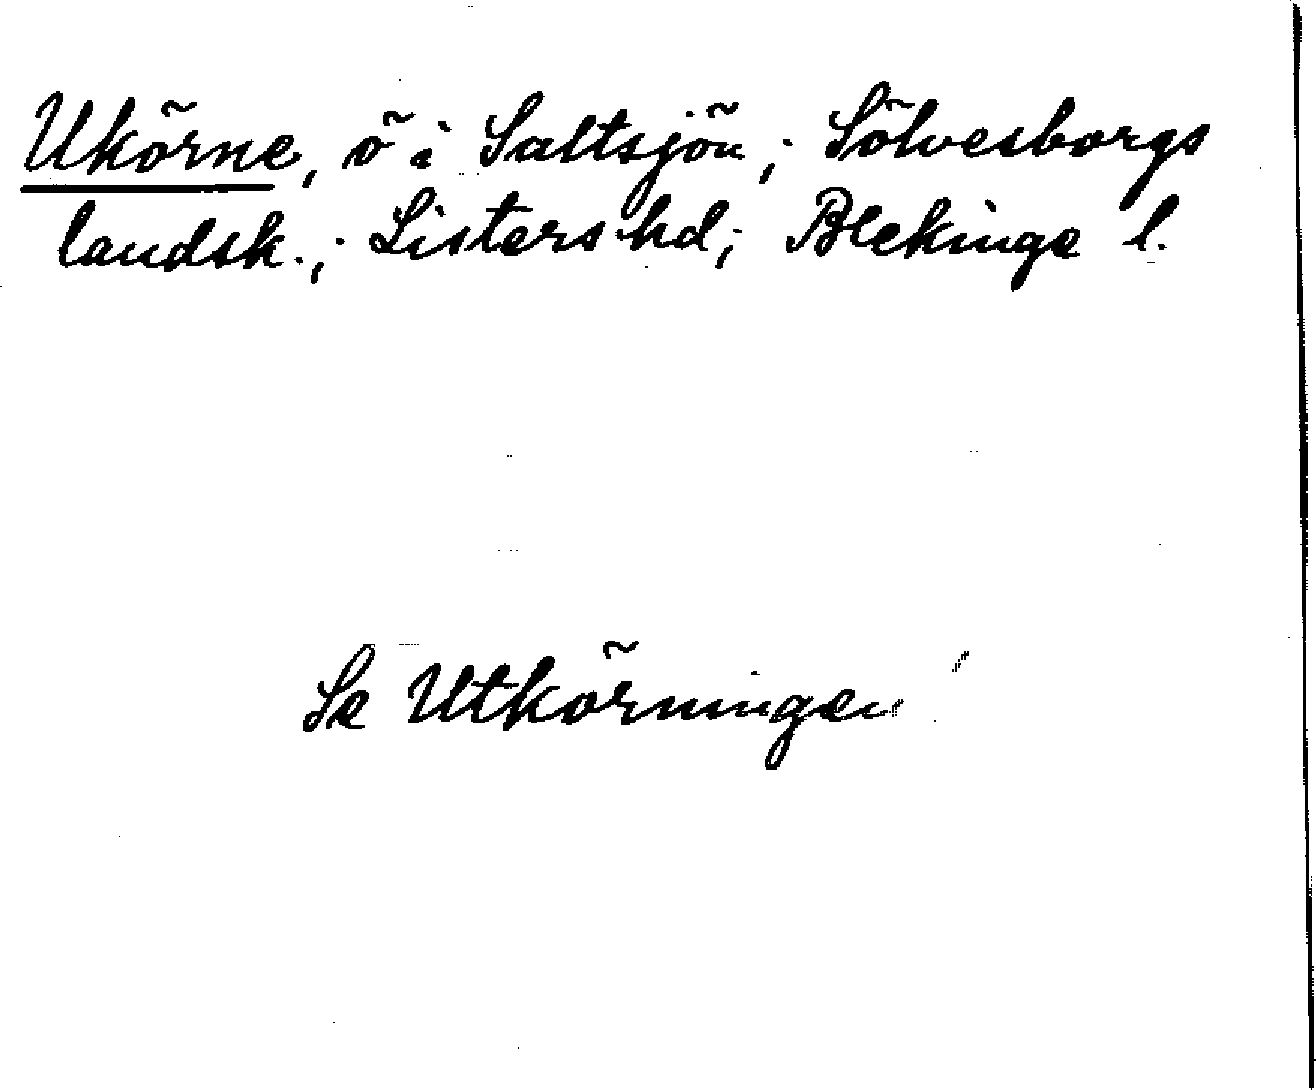 Ukörne, ö i Saltsjön; Sölvesborgs
landsk.; Listers hd; Blekinge l.
Se Utkörningen